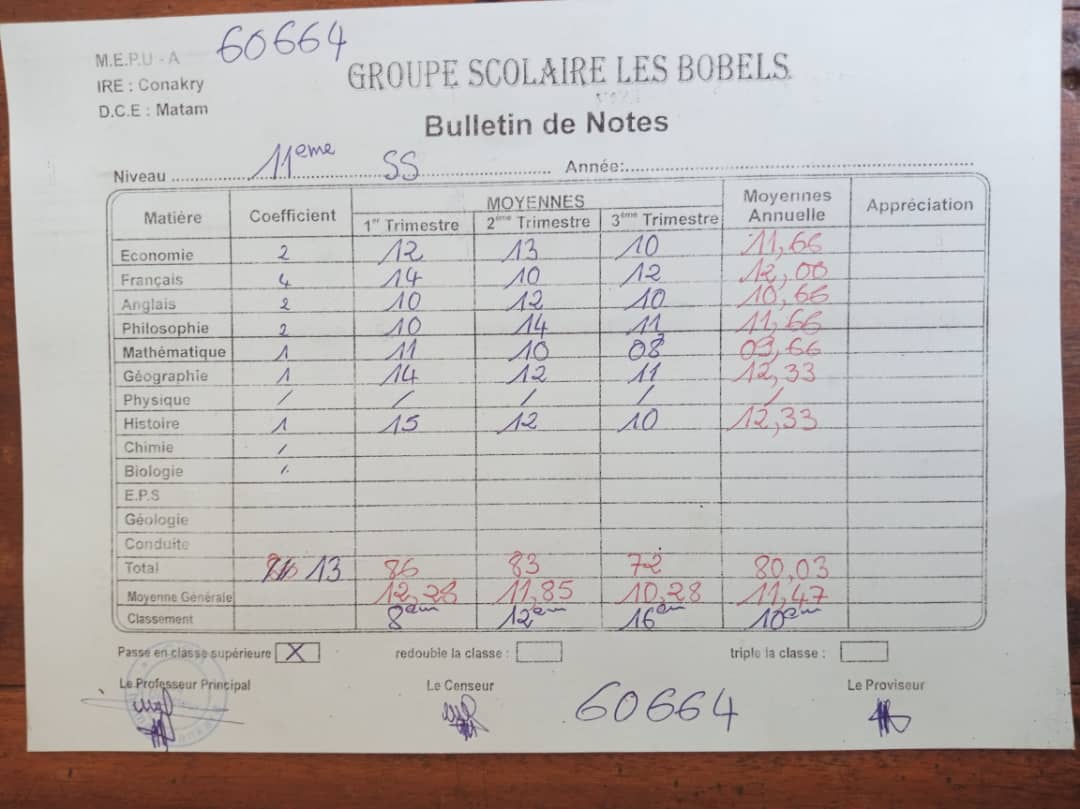 M.E.P.U - A 60664
IRE : Conakry
D.C.E : Matam
GROUPE SCOLAIRE LES BOBELS
Bulletin de Notes
Niveau 11eme SS Année:
Matière Coefficient MOYENNES Moyennes Annuelle Appréciation
1er Trimestre 2ème Trimestre 3ème Trimestre
Economie 2 12 13 10 11,66
Français 4 14 10 12 12,00
Anglais 2 10 12 10 10,66
Philosophie 2 10 14 11 11,66
Mathématique 1 11 10 08 09,66
Géographie 1 14 12 11 12,33
Physique / / / / /
Histoire 1 15 12 10 12,33
Chimie /
Biologie /
E.P.S
Géologie
Conduite
Total 13 86 83 72 80,03
Moyenne Générale 12,28 11,85 10,28 11,47
Classement 8em 12em 16em 10em
Passe en classe supérieure : X redouble la classe : triple la classe :
Le Professeur Principal Le Censeur Le Proviseur
60664